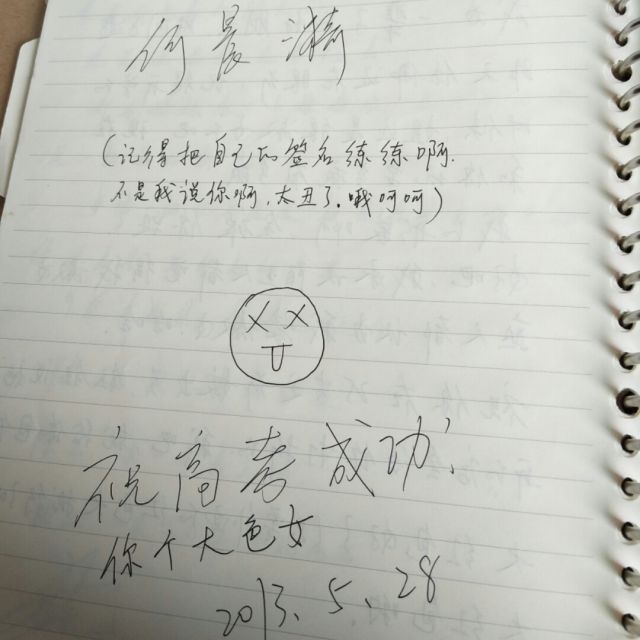 何晨漪
(记得把自己的签名练练啊.
不是我说你啊,太丑了.哦呵呵)
祝高考成功.
你个大色女
2013.5.28